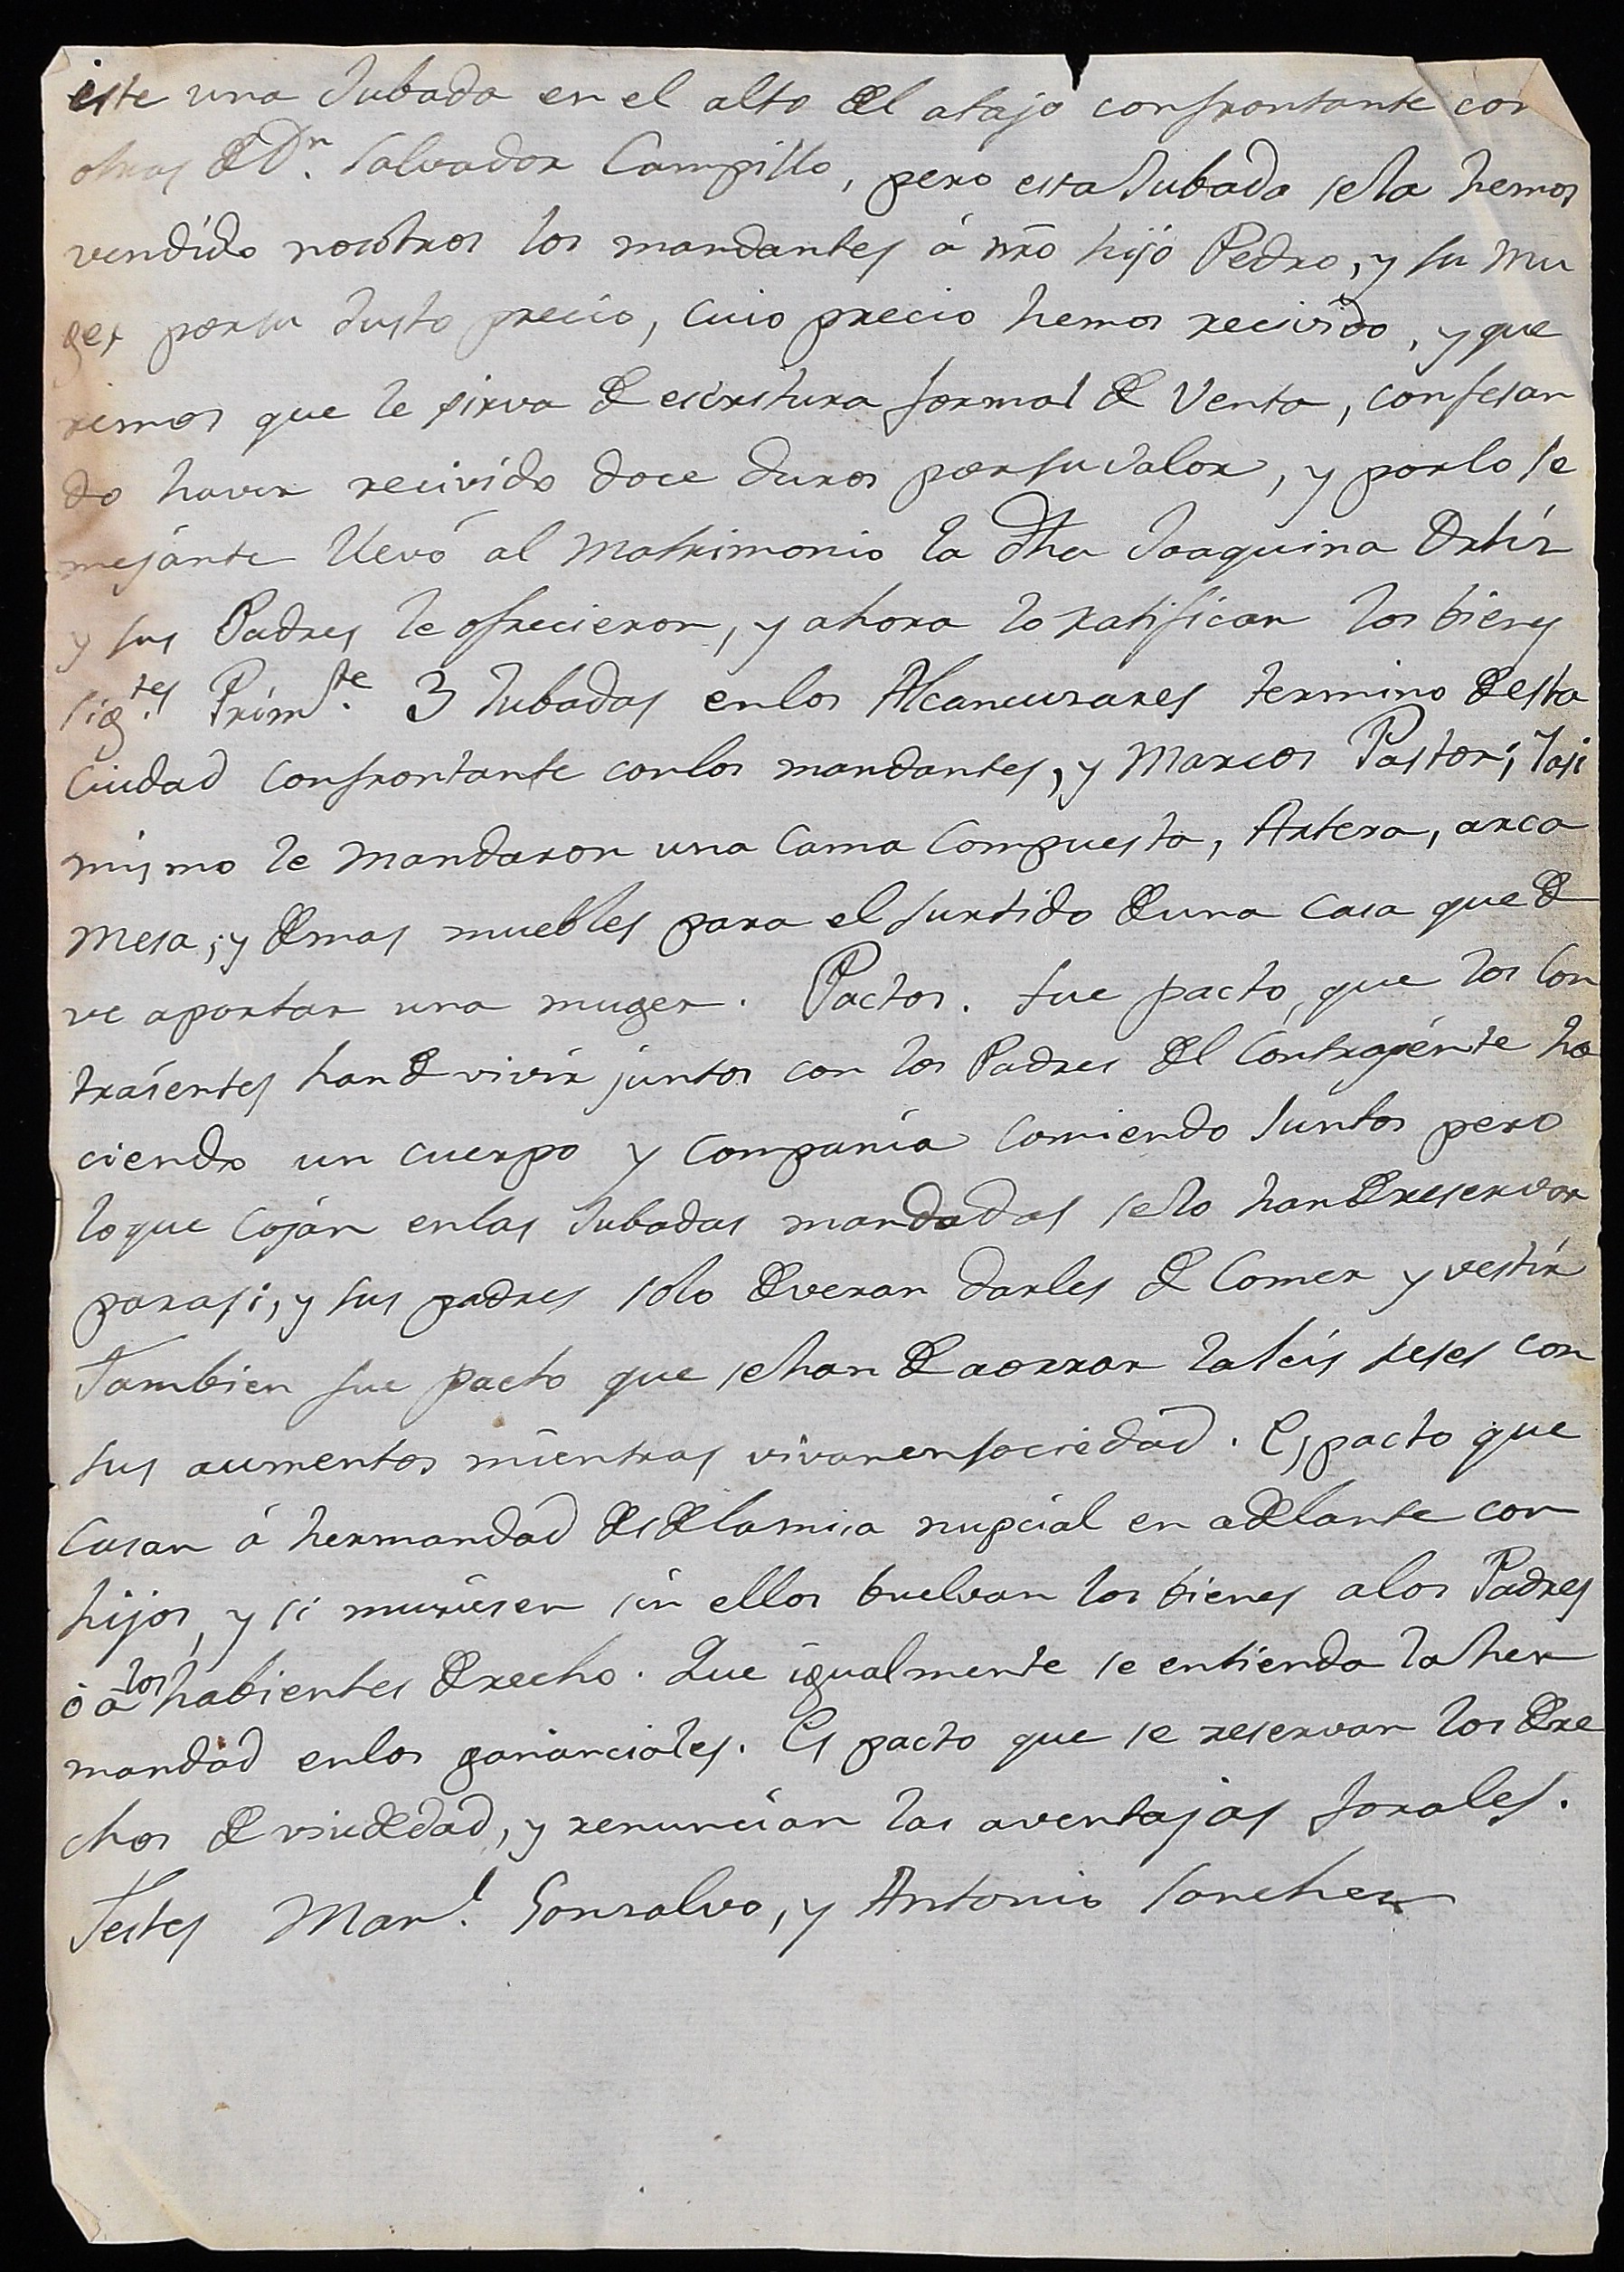 este una Jubada en el alto del atajo confrontante con
otras de Dn. Salvador Campillo, pero esta Jubada sela hemos
vendído nosotros los mandantes á nr̃o hijo Pedro, y su Mu
ger porsu Justo precio, cuio precio hemos recivido, y que
remos que le sirva de escritura formal de Venta, confesan
do haver recivído doce duros porsu valor, y porlo se
mejánte llevó al Matrimonio la dha Joaquina Ortíz
y sus Padres le ofrecieron, y ahora lo ratifican los bienes
sigtes. Primte. 3 Jubadas enlos Alcamuzares termino desta
Ciudad confrontante conlos mandantes, y Marcos Pastor; Yasi
mismo le Mandaron una Cama Compuesta, Artesa, arca
Mesa, y demas muebles para el surtido deuna Casa que de
ve aportar una muger. Pactos. fue pacto, que los Con
traíentes hande vivír juntos con los Padres del Contrayénte ha
ciendo un cuerpo y Companía Comiendo Juntos pero
loque Coján enlas Jubadas mandadas selo handereservar
parasi, y sus padres solo deveran darles de Comer y vestír
Tambien fue pacto que sehan de aorrar las seis reses con
sus aumentos mientras vivanensociedad. Es pacto que
Casan á hermandad desdelamisa nupcial en adelante con
hijos, y si muriesen sin ellos buelvan los bienes alos Padres
ò a los habientes derecho. Que igualmente se entienda laher
mandad enlos gananciales. Es pacto que se reservan los dere
chos de viudedad, y renuncian las aventajas forales.
Testes Manl. Gonzalvo, y Antonio Sanchez